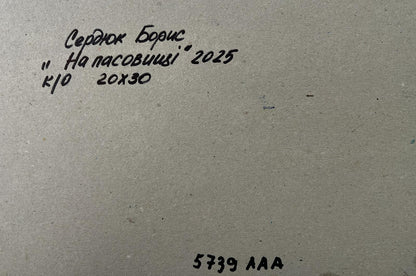 Сердюк Борис
„На пасовищі" 2025
к/о 20х30
5739 ААА